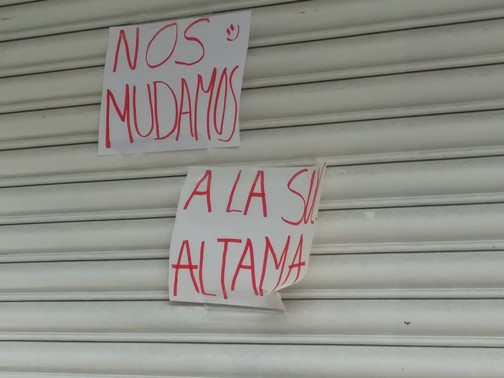 NOS
MUDAMOS
A LA SUC
ALTAMA